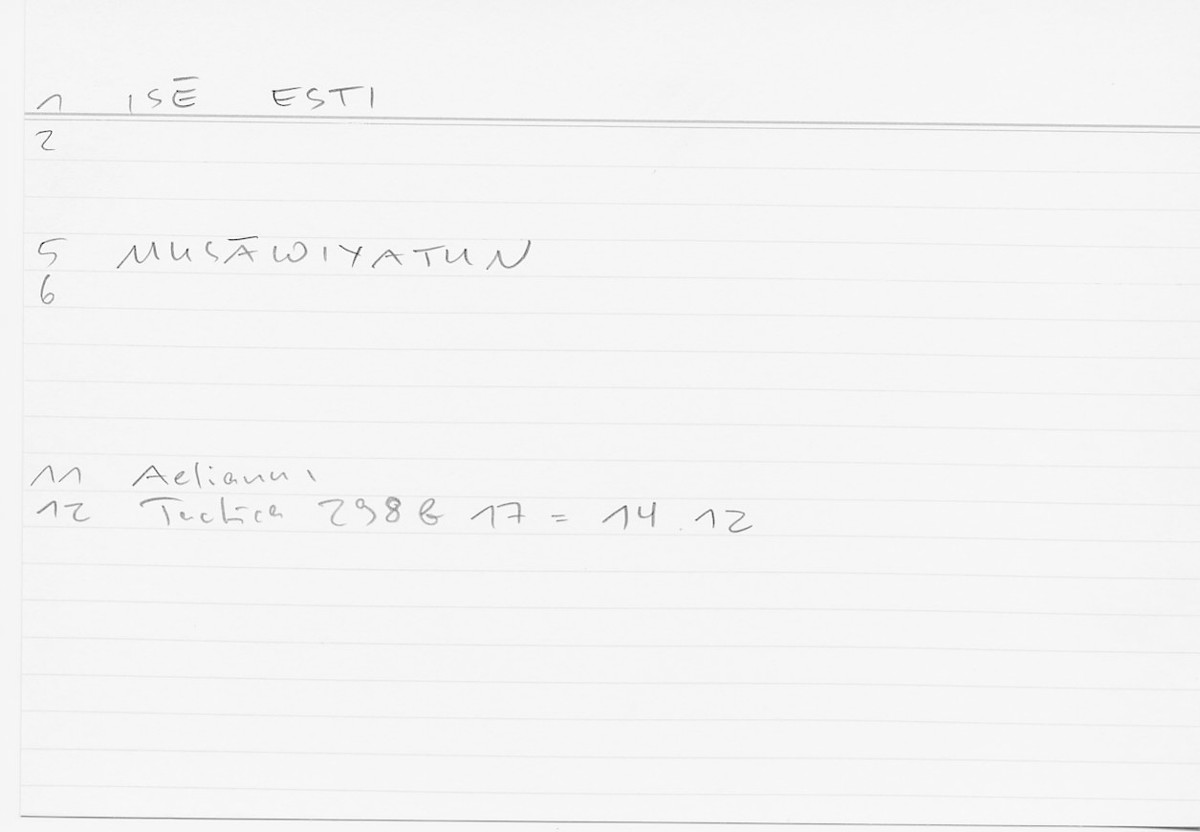 1 ISĒ ESTI
2
5 MUSĀWIYATUN
6
11 Aeliani
12 Tactica 298 b 17 = 14.12